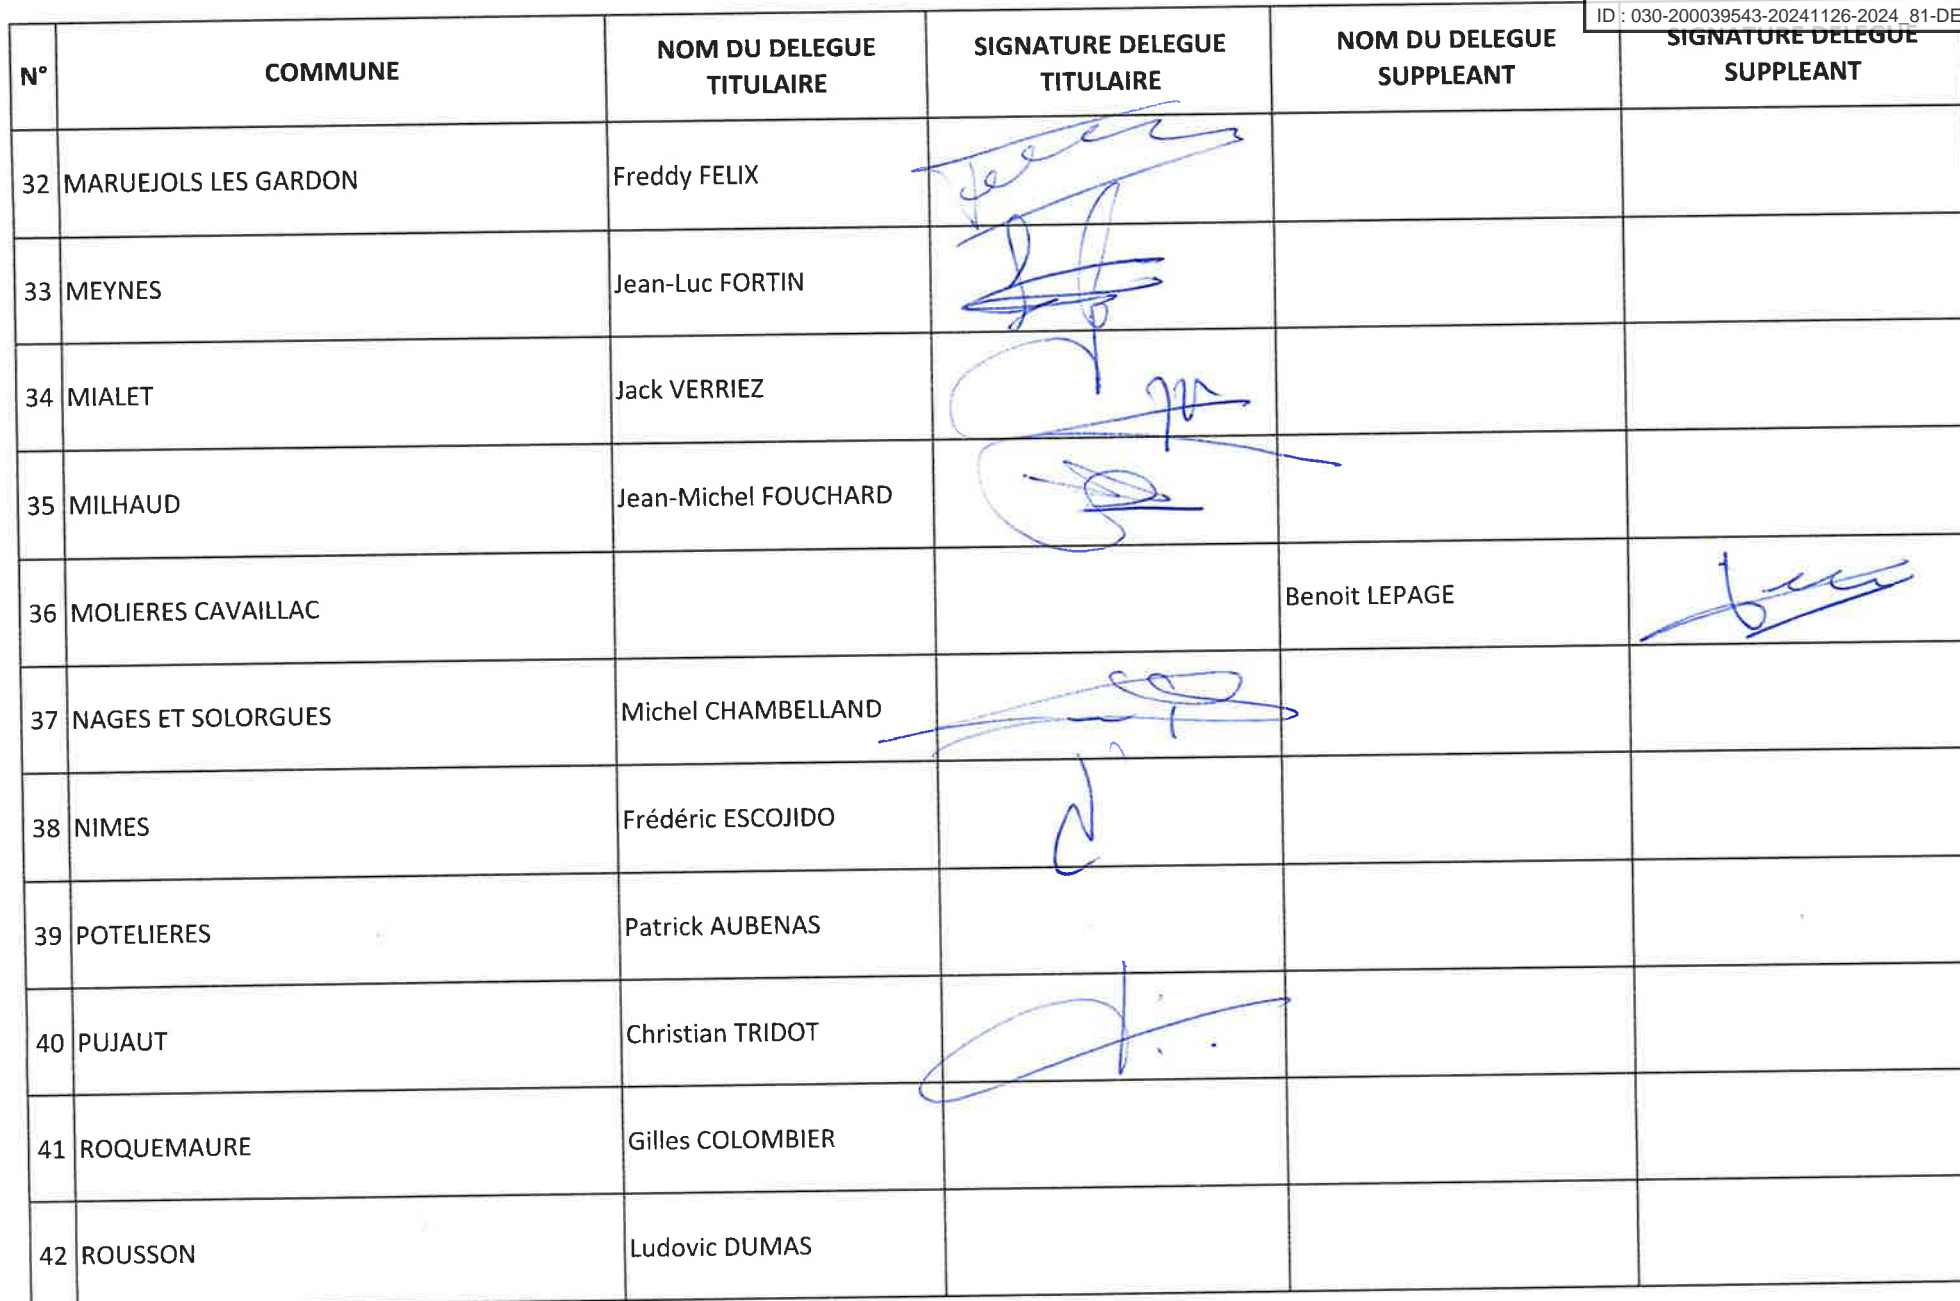 ID : 030-200039543-20241126-2024_81-DE
N° COMMUNE NOM DU DELEGUE TITULAIRE SIGNATURE DELEGUE TITULAIRE NOM DU DELEGUE SUPPLEANT SIGNATURE DELEGUE SUPPLEANT
32 MARUEJOLS LES GARDON Freddy FELIX
33 MEYNES Jean-Luc FORTIN
34 MIALET Jack VERRIEZ
35 MILHAUD Jean-Michel FOUCHARD
36 MOLIERES CAVAILLAC Benoit LEPAGE
37 NAGES ET SOLORGUES Michel CHAMBELLAND
38 NIMES Frédéric ESCOJIDO
39 POTELIERES Patrick AUBENAS
40 PUJAUT Christian TRIDOT
41 ROQUEMAURE Gilles COLOMBIER
42 ROUSSON Ludovic DUMAS